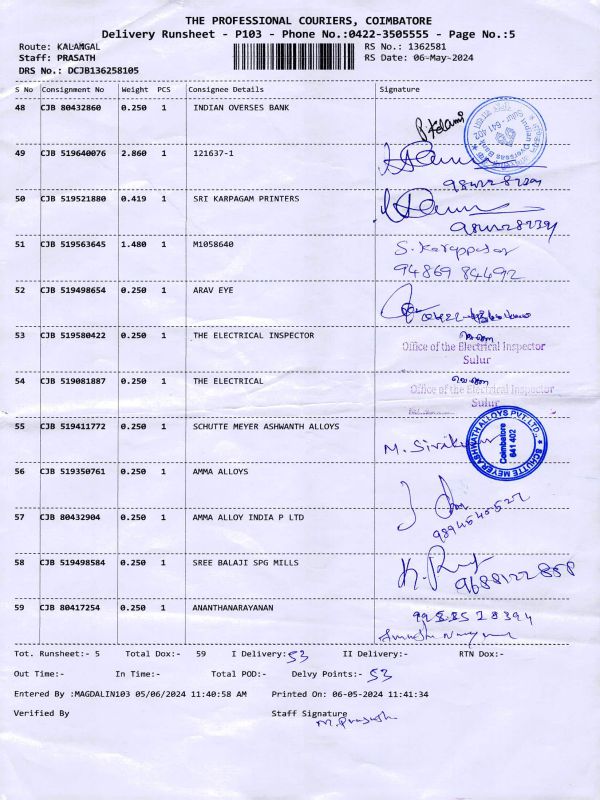 THE PROFESSIONAL COURIERS, COIMBATORE
Delivery Runsheet - P103 - Phone No.:0422-3505555 - Page No.:5
Route: KALANGAL RS No.: 1362581
Staff: PRASATH RS Date: 06-May-2024
DRS No.: DCJB136258105
S No Consignment No Weight PCS Consignee Details Signature
48 CJB 80432860 0.250 1 INDIAN OVERSES BANK
49 CJB 519640076 2.860 1 121637-1
50 CJB 519521880 0.419 1 SRI KARPAGAM PRINTERS
51 CJB 519563645 1.480 1 M1058640
94869 84492
52 CJB 519498654 0.250 1 ARAV EYE
53 CJB 519580422 0.250 1 THE ELECTRICAL INSPECTOR
Office of the Electrical Inspector
Sulur
54 CJB 519081887 0.250 1 THE ELECTRICAL
Office of the Electrical Inspector
Sulur
55 CJB 519411772 0.250 1 SCHUTTE MEYER ASHWANTH ALLOYS
SCHUTTE MEYER ASHWATH ALLOYS PVT. LTD.,
Coimbatore
641 402
56 CJB 519350761 0.250 1 AMMA ALLOYS
57 CJB 80432904 0.250 1 AMMA ALLOY INDIA P LTD
58 CJB 519498584 0.250 1 SREE BALAJI SPG MILLS
9688122858
59 CJB 80417254 0.250 1 ANANTHANARAYANAN
Tot. Runsheet:- 5 Total Dox:- 59 I Delivery:- 53 II Delivery:- RTN Dox:-
Out Time:- In Time:- Total POD:- Delvy Points:- 53
Entered By :MAGDALIN103 05/06/2024 11:40:58 AM Printed On: 06-05-2024 11:41:34
Verified By Staff Signature
M. Prasath